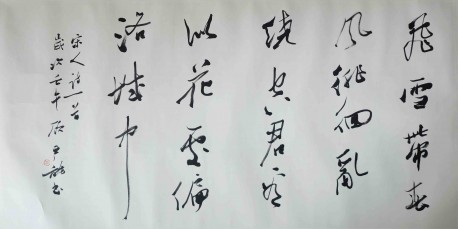 飛雪帶春
風徘徊亂
繞空君看
似花處偏
洛城中
宋人詩一首
歲次壬午 書